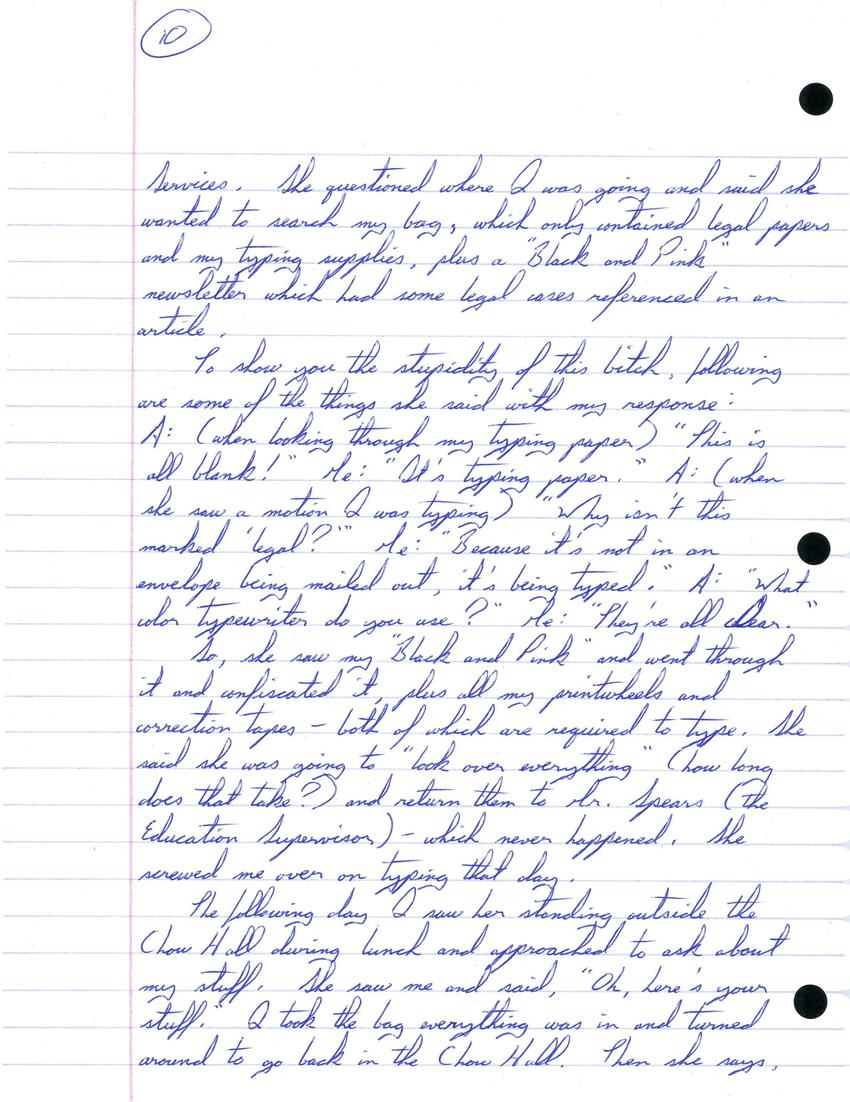 10
Services. She questioned where I was going and said she
wanted to search my bag, which only contained legal papers
and my typing supplies, plus a "Black and Pink"
newsletter which had some legal cases referenced in an
article.
To show you the stupidity of this bitch, following
are some of the things she said with my response:
A: (when looking through my typing paper) "This is
all blank!" Me: "It's typing paper." A: (when
she saw a motion I was typing) "Why isn't this
marked 'legal?'" Me: "Because it's not in an
envelope being mailed out, it's being typed." A: "What
color typewriter do you use?" Me: "They're all clear."
So, she saw my "Black and Pink" and went through
it and confiscated it, plus all my printwheels and
correction tapes – both of which are required to type. She
said she was going to "look over everything" (how long
does that take?) and return them to Mr. Spears (the
Education Supervisor) – which never happened. She
screwed me over on typing that day.
The following day I saw her standing outside the
Chow Hall during lunch and approached to ask about
my stuff. She saw me and said, "Oh, here's your
stuff." I took the bag everything was in and turned
around to go back in the Chow Hall. Then she says,